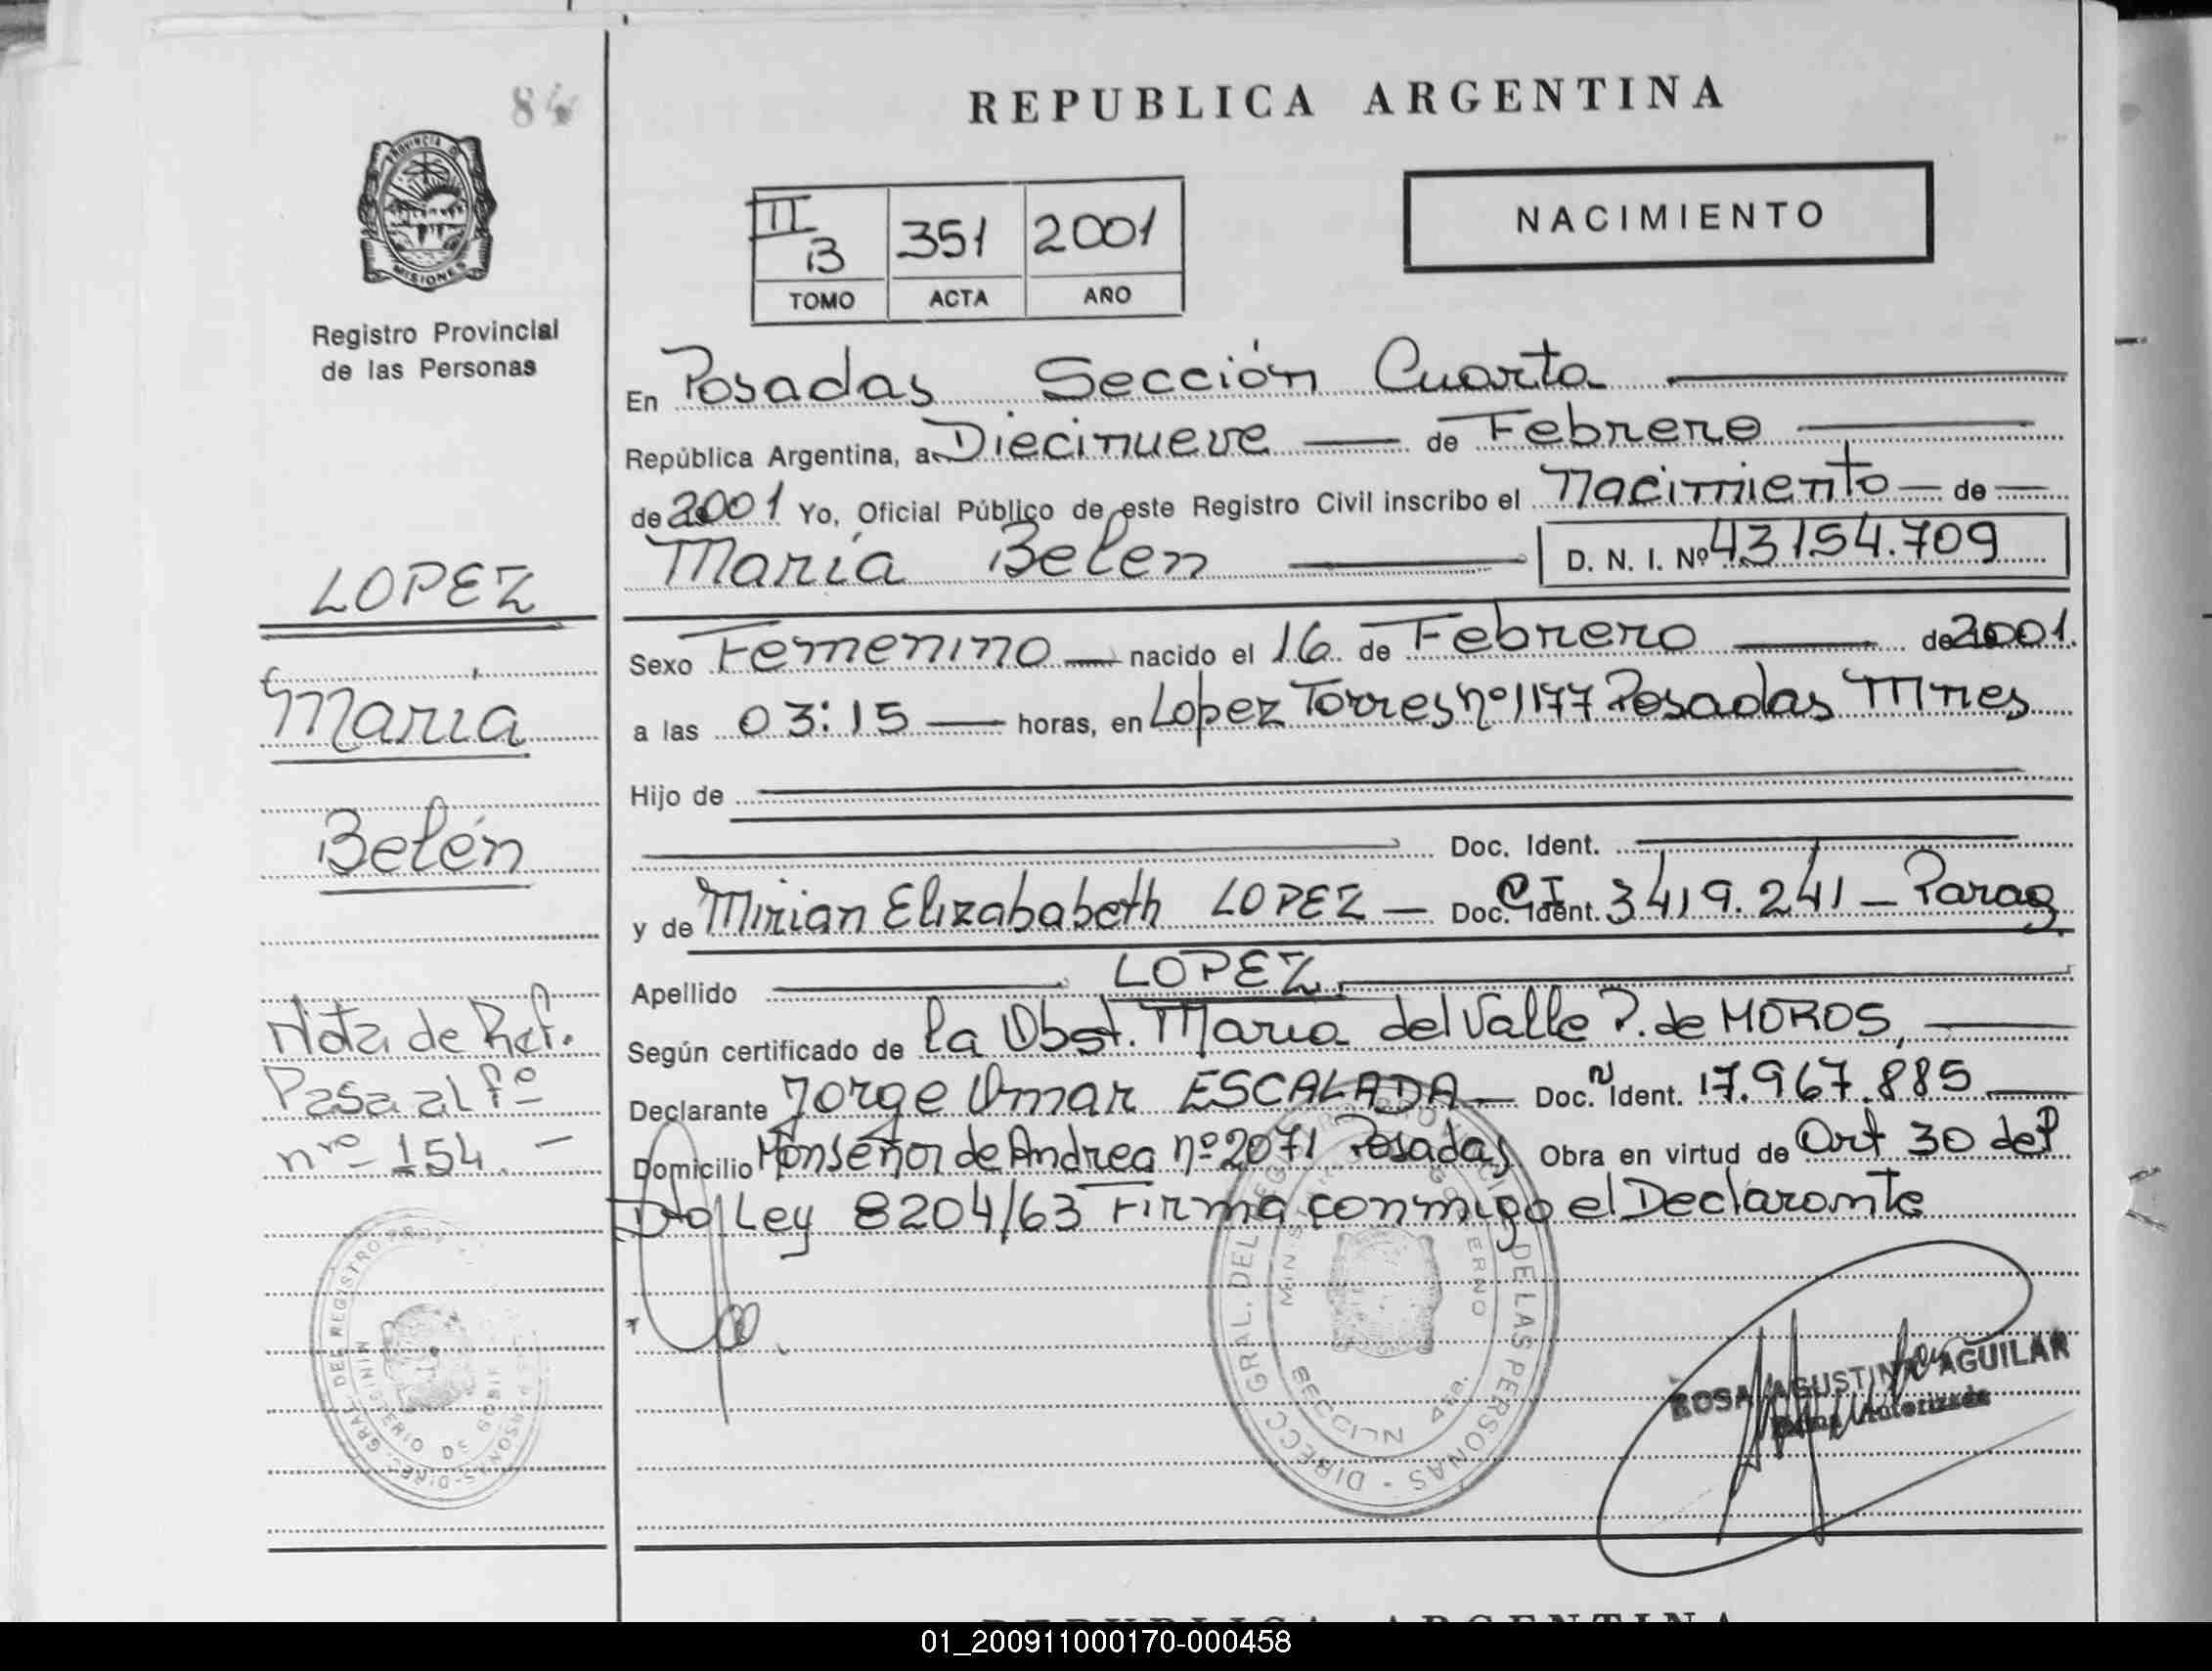 84
REPUBLICA ARGENTINA
PROVINCIA D
MISIONES
Registro Provincial
de las Personas
NACIMIENTO
II B 351 2001
TOMO ACTA AÑO
En Posadas Sección Cuarta
República Argentina, a Diecinueve de Febrero
de 2001 Yo, Oficial Público de este Registro Civil inscribo el Nacimiento de
María Belen D. N. I. Nº 43154.709
LOPEZ
María
Belén
Sexo Femenino nacido el 16 de Febrero de 2001.
a las 03:15 horas, en Lopez Torres nº 1177 Posadas Mnes
Hijo de
Doc. Ident.
y de Mirian Elizababeth LOPEZ Doc. Ident. C I 3419.241 - Parag.
Apellido LOPEZ.
Según certificado de la Obst. Maria del Valle P. de MOROS,
Declarante Jorge Omar ESCALADA Doc. N Ident. 17.967.885
Domicilio Monseñor de Andrea nº 2071 Posadas Obra en virtud de Art 30 del
Dto Ley 8204/63 Firma conmigo el Declarante
Nota de Ref.
Pasa al fº
nro 154. -
DIRECC GRAL. DEL REG PROVINCI DE LAS PERSONAS
SECCION 4ta.
ROSA AGUSTINA AGUILAR
Firma Autorizada
REPUBLICA ARGENTINA
01_200911000170-000458